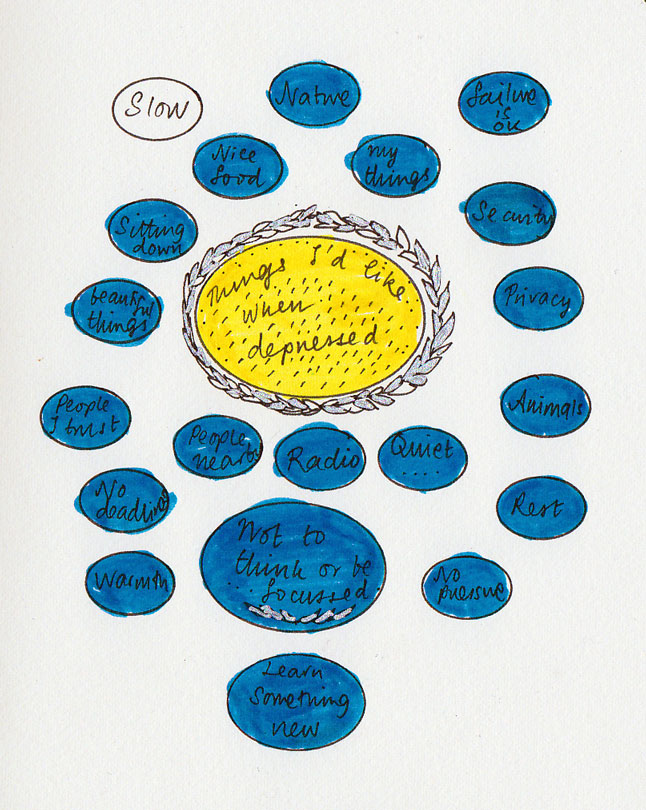 Slow
Nature
Failure
is
OK
Nice
food
my
things
Sitting
down
Security
Things I'd like
when
depressed
beautiful
things
Privacy
People
I trust
People
nearby
Radio
Quiet
Animals
No
deadlines
Rest
Not to
think or be
focussed
Warmth
No
pressure
Learn
something
new